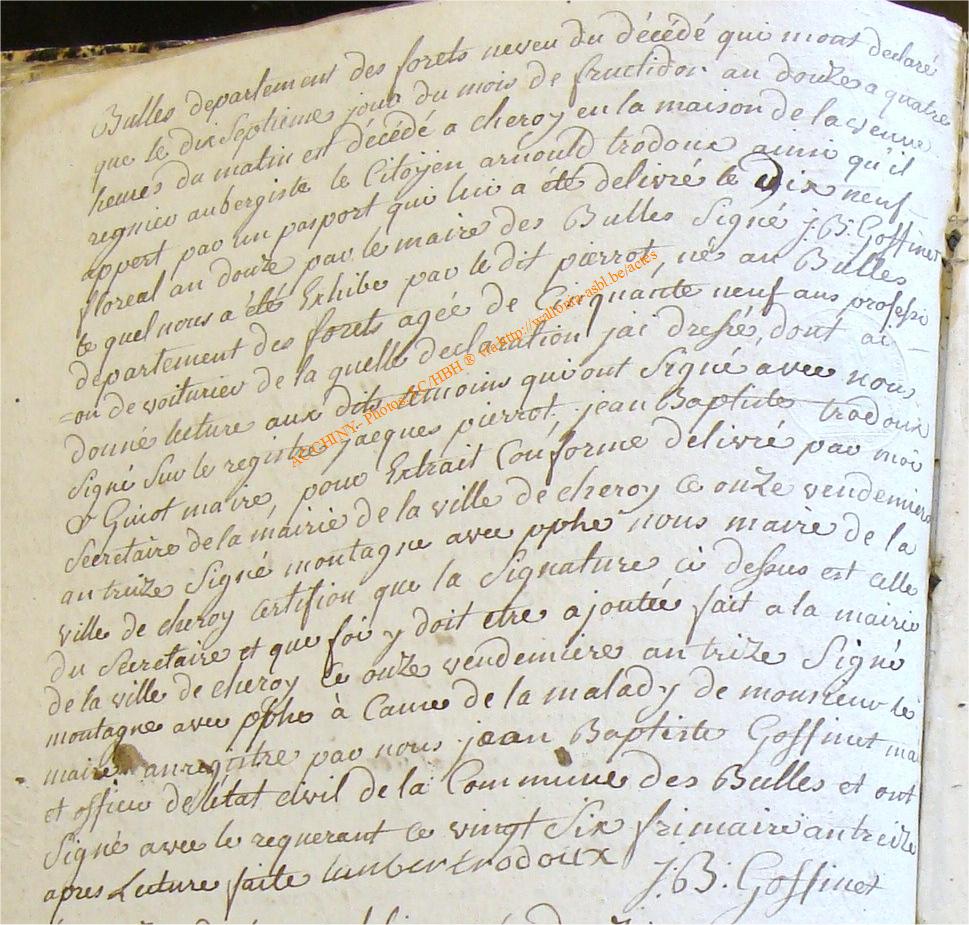 Bulles departement des forets neveu du décédé qui mont declaré
que le dix Septieme jour du mois de fructidor an douze a quatre
heures du matin est décédé a cheroy en la maison de la veuve
regnier aubergiste le Citoyen arnould trodoux ainsi qu'il
appert par un pasport qui lui a été delivré le Dix neuf
floreal an douze par le maire des Bulles Signé J. B. Goffinet
le quel nous a été Exhibé par le dit pierrot, nés au Bulles
departement des forets agée de Cinquante neuf ans professi
=on de voiturier de la quelle declaration jai dressé, dont ai
donné lecture aux dits temoins qui ont Signé avec nous
Signé Sur le registre jacques pierrot, jean Baptiste trodoux
& Guiot maire, pour Extrait Conforme delivré par moi
Secretaire de la mairie de la ville de cheroy ce onze vendemiere
an treize Signé montagne avec pphe nous maire de la
ville de cheroy Certifion que la Signature ci dessus est celle
du Secretaire et que foi y doit etre ajoutée fait a la mairie
de la ville de cheroy ce onze vendemiere an trize Signé
montagne avec pphe à Cause de la malady de monsieur le
maire anregitre par nous jean Baptiste Goffinet mai
et officier de letat civil de la Commune des Bulles et ont
Signé avec le requerant ce vingt Six frimaire an treize
apres Lecture faite lambert trodoux J. B. Goffinet
AC CHINY - Photos EC/HBH ® via http://wallonia-asbl.be/actes